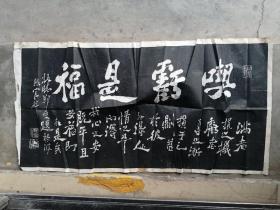 喫虧是福
滿者
損之機
虧者
盈之漸
損于己
則益
于彼
外得人
情之平
内得
我心之安
既平且
安福即
在是矣
板橋鄭燮題